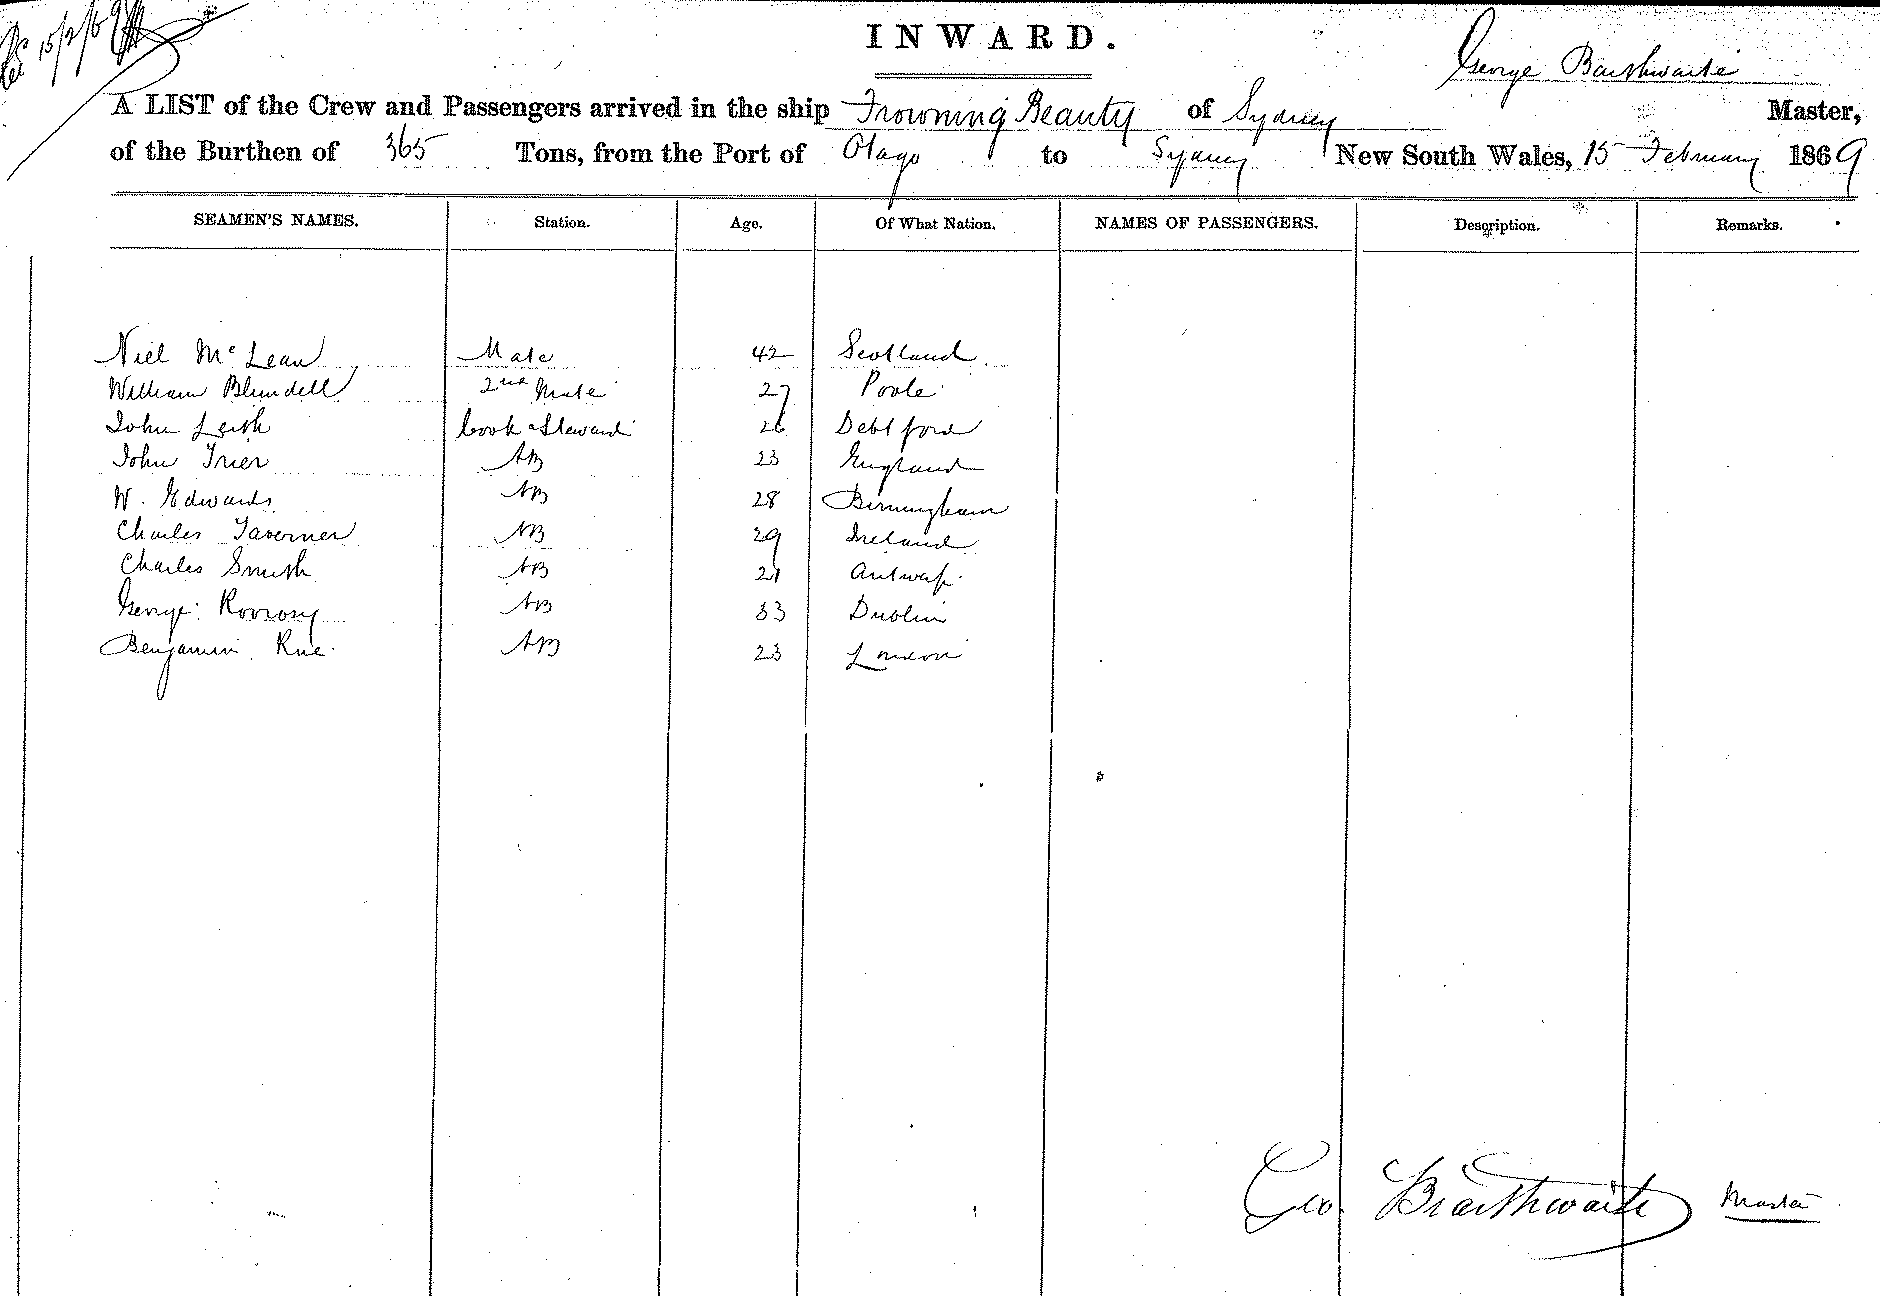 15/2/69
INWARD.
George Braithwaite
A LIST of the Crew and Passengers arrived in the ship Frowning Beauty of Sydney Master,
of the Burthen of 365 Tons, from the Port of Otago to Sydney New South Wales, 15 February 1869
SEAMEN'S NAMES. Station. Age. Of What Nation. NAMES OF PASSENGERS. Description. Remarks.
Niel McLean Mate 42 Scotland
William Blundell 2nd Mate 27 Poole
John Leish Cook & Steward 26 Debtford
John Trier AB 23 England
W. Edwards AB 28 Birmingham
Charles Taverner AB 29 Ireland
Charles Smith AB 21 Antwap
George AB 33 Dublin
Benjamin Rue AB 23 London
Geo. Braithwaite Master